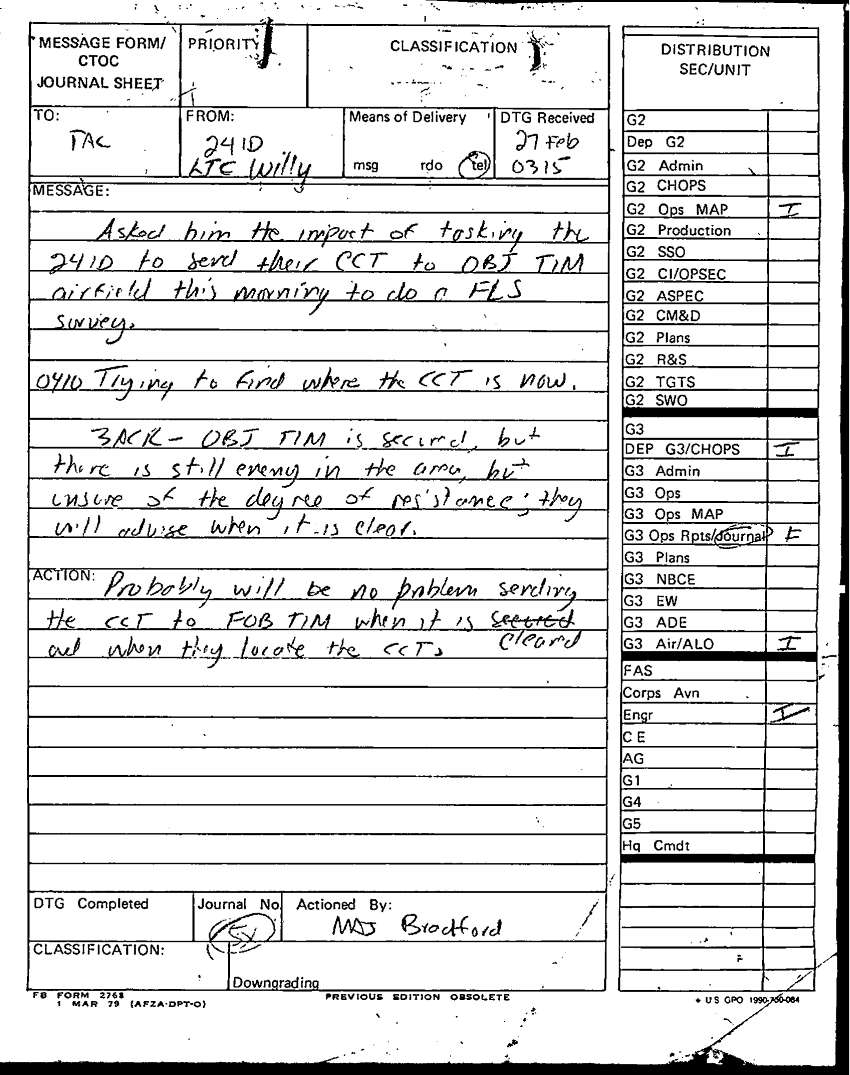 MESSAGE FORM/ CTOC JOURNAL SHEET
PRIORITY
CLASSIFICATION
TO:
TAC
FROM:
24 ID
LTC Willy
Means of Delivery
msg rdo tel
DTG Received
27 Feb
0315
MESSAGE:
Asked him the impact of tasking the
24 ID to send their CCT to OBJ TIM
airfield this morning to do a FLS
survey.
0410 Trying to find where the CCT is now.
BACK - OBJ TIM is secured, but
there is still enemy in the area, but
unsure of the degree of resistance; they
will advise when it is clear.
ACTION: Probably will be no problem sending
the CCT to FOB TIM when it is secured
cleared
and when they locate the CCT.
DTG Completed
Journal No.
Actioned By:
MAJ Bradford
CLASSIFICATION:
Downgrading
FB FORM 2768
1 MAR 79 (AFZA-DPT-O)
PREVIOUS EDITION OBSOLETE
DISTRIBUTION
SEC/UNIT
G2
Dep G2
G2 Admin
G2 CHOPS
G2 Ops MAP I
G2 Production
G2 SSO
G2 CI/OPSEC
G2 ASPEC
G2 CM&D
G2 Plans
G2 R&S
G2 TGTS
G2 SWO
G3
DEP G3/CHOPS I
G3 Admin
G3 Ops
G3 Ops MAP
G3 Ops Rpts/Journal
G3 Plans
G3 NBCE
G3 EW
G3 ADE
G3 Air/ALO I
FAS
Corps Avn
Engr I
C E
AG
G1
G4
G5
Hq Cmdt
US GPO 1990-